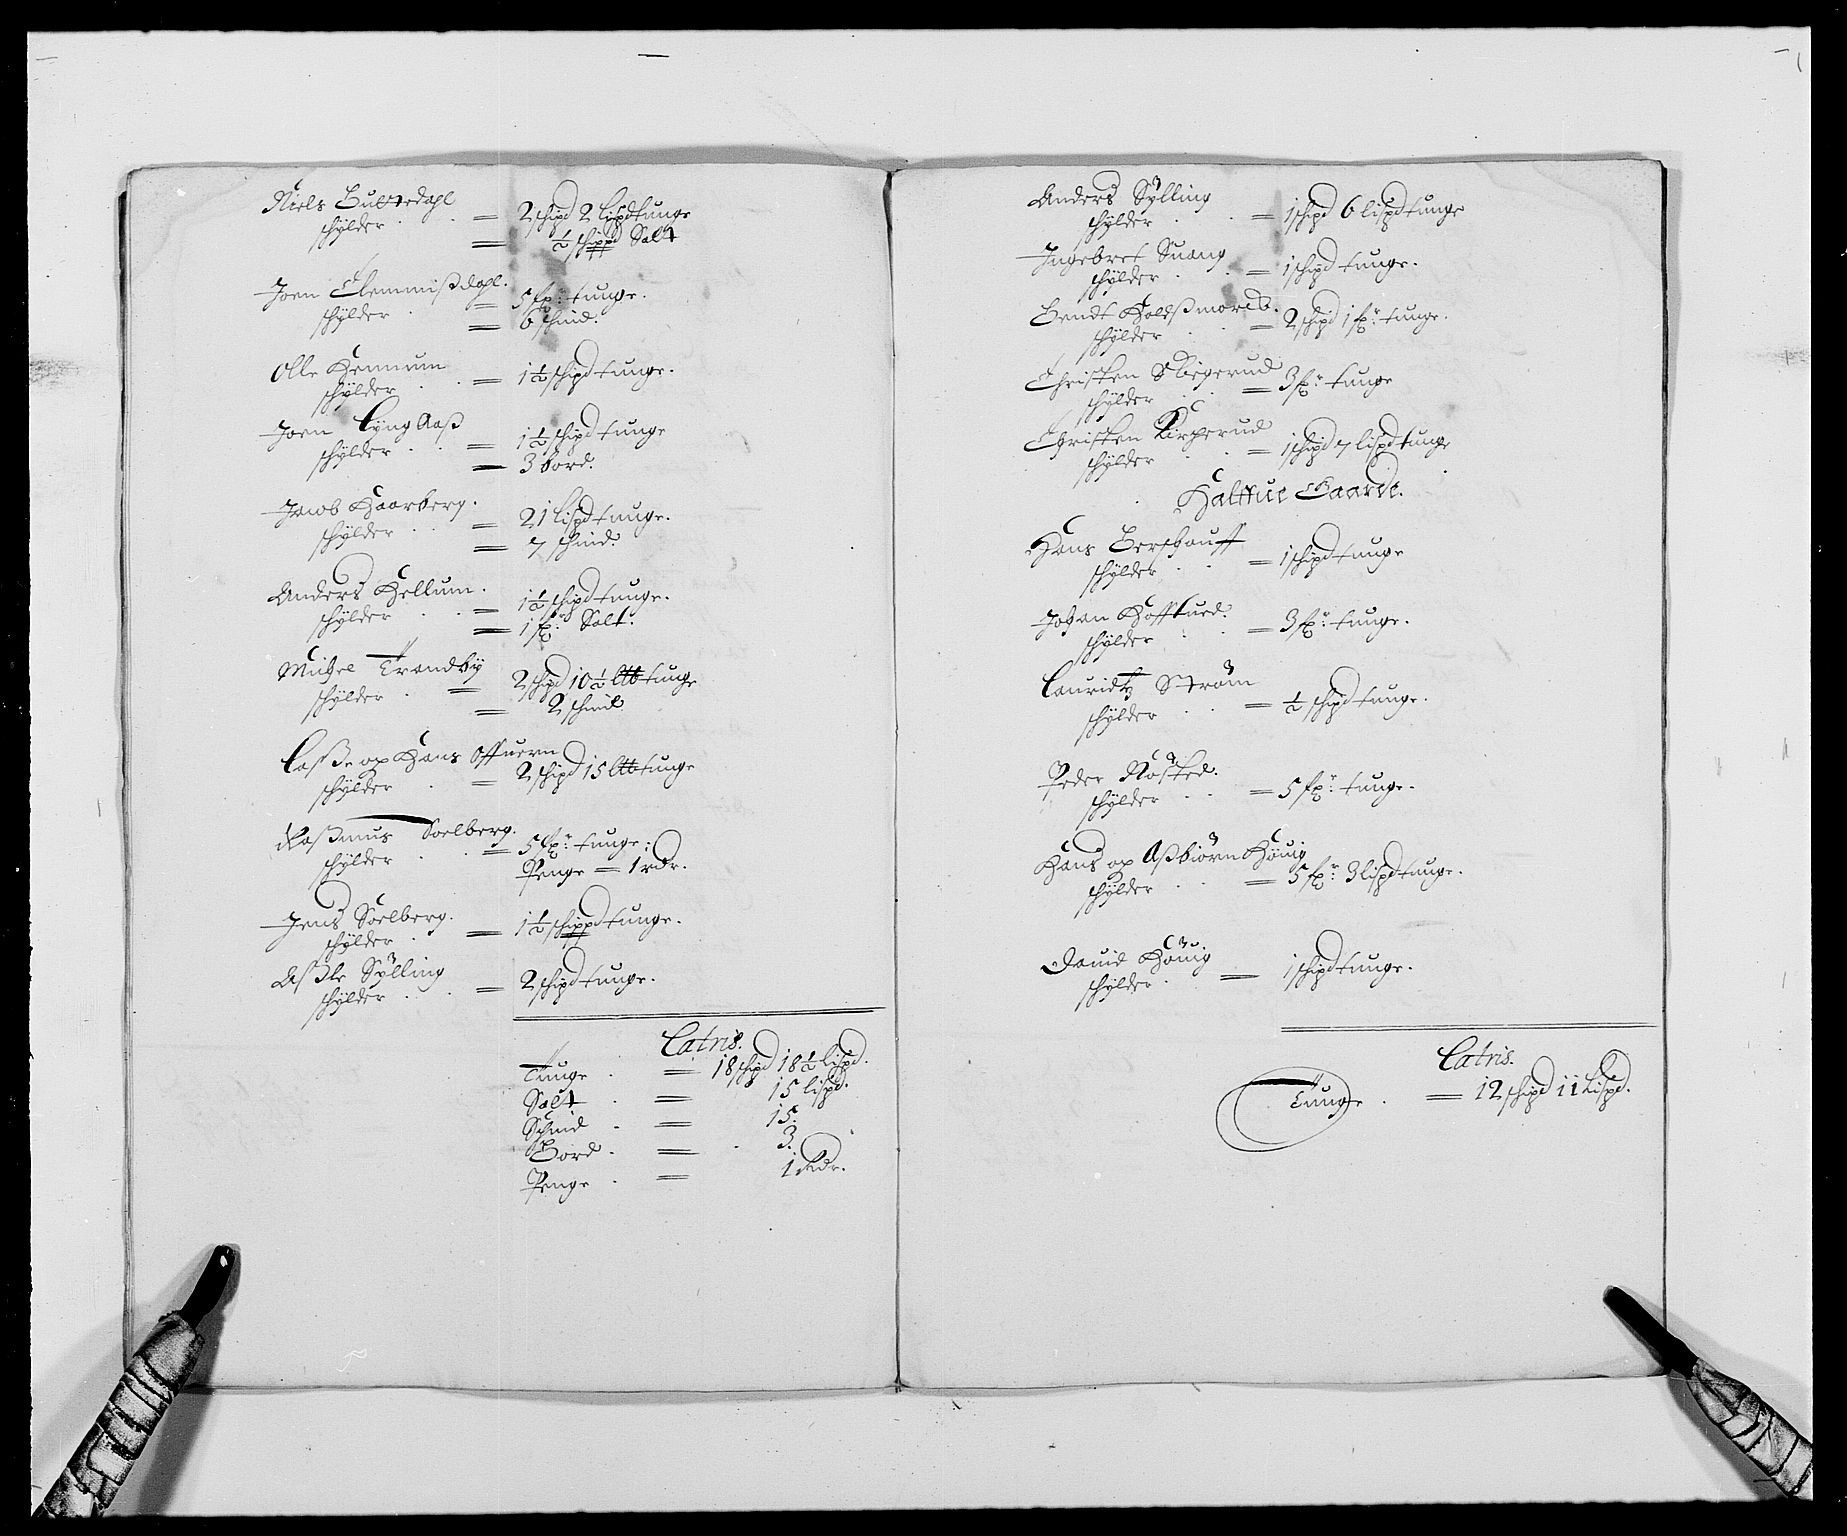 Niels Guttedahl
schylder . . = 2 schipd 2 lispd tunge
= ½ schippd Salt
Joen Clemmißdahl.
schylder . = 5 fr: tunge.
= 6 schind.
Olle Hennum
schylder . . = 1½ schipd tunge.
Joen Lyng Aaß
schylder . . = 1½ schipd tunge
= 3 bord.
Jacob Haarberg.
schylder . . = 21 lispd tunge.
= 7 schind.
Anders Hellum.
schylder . . = 1½ schipd tunge.
= 1 fr: Salt.
Michel Trandby
schylder . = 2 schipd 10½ ltb tunge
= 2 schind
Laße og Hans Offuern
schylder . = 2 schipd 15 ltb tunge
Raßmus Soelberg.
schylder . . = 5 fr: tunge:
Penge = 1 rdr.
Jens Soelberg.
schylder . = 1½ schippd tunge.
Aßle Sylling
schylder . . = 2 schipd tunge.
Latris.
Tunge . = 18 schipd 18½ lispd.
Salt . = 15 lispd.
Schind . = 15.
Bord . = 3.
Penge . = 1 Rdr.
Anders Sylling
schylder . . = 1 schipd 6 lispd tunge
Ingebret Suang
schylder . . = 1 schipd tunge.
Bendt Holdßmorck.
schylder . . = 2 schipd 1 fr: tunge.
Christen Skiegerud
schylder . . = 3 fr: tunge
Christen Kircherud
schylder . . = 1 schipd 7 lispd tunge
Halffue Gaarde.
Hans Berghauff
schylder . . = 1 schipd tunge
Johan Hofftued.
schylder . . = 3 fr: tunge.
Lauridtz Strøm
schylder . . = ½ schipd tunge.
Peder Røsted.
schylder . . = 5 fr: tunge.
Hans og Aßbiørn Hønig
schylder . . = 5 fr: 3 lispd tunge.
Dauid Hønig
schylder . = 1 schipd tunge.
Latris.
Tunge . = 12 schipd 11 Lispd.